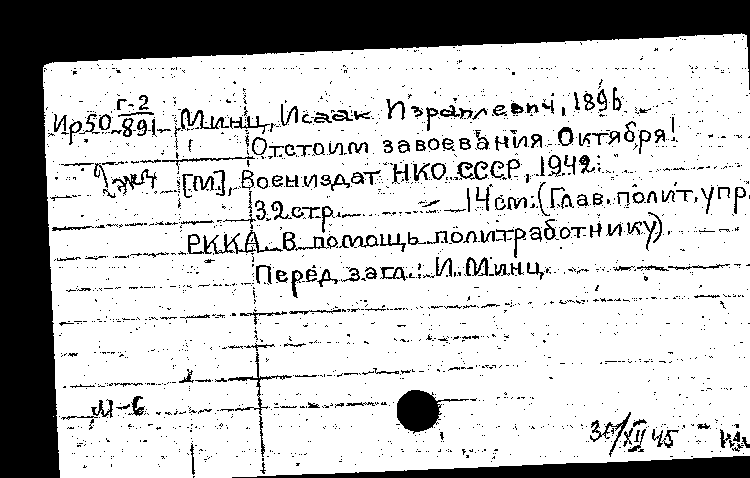 Ир50 г-2/891 Минц, Исаак Израилевич, 1896
Отстоим завоевания Октября!
2 экз [М], Воениздат НКО СССР, 1942.
32 стр. – 14 см. (Глав. полит. упр.
РККА. В помощь политработнику).
Перед загл.: И. Минц.
М-6
30/XII 45